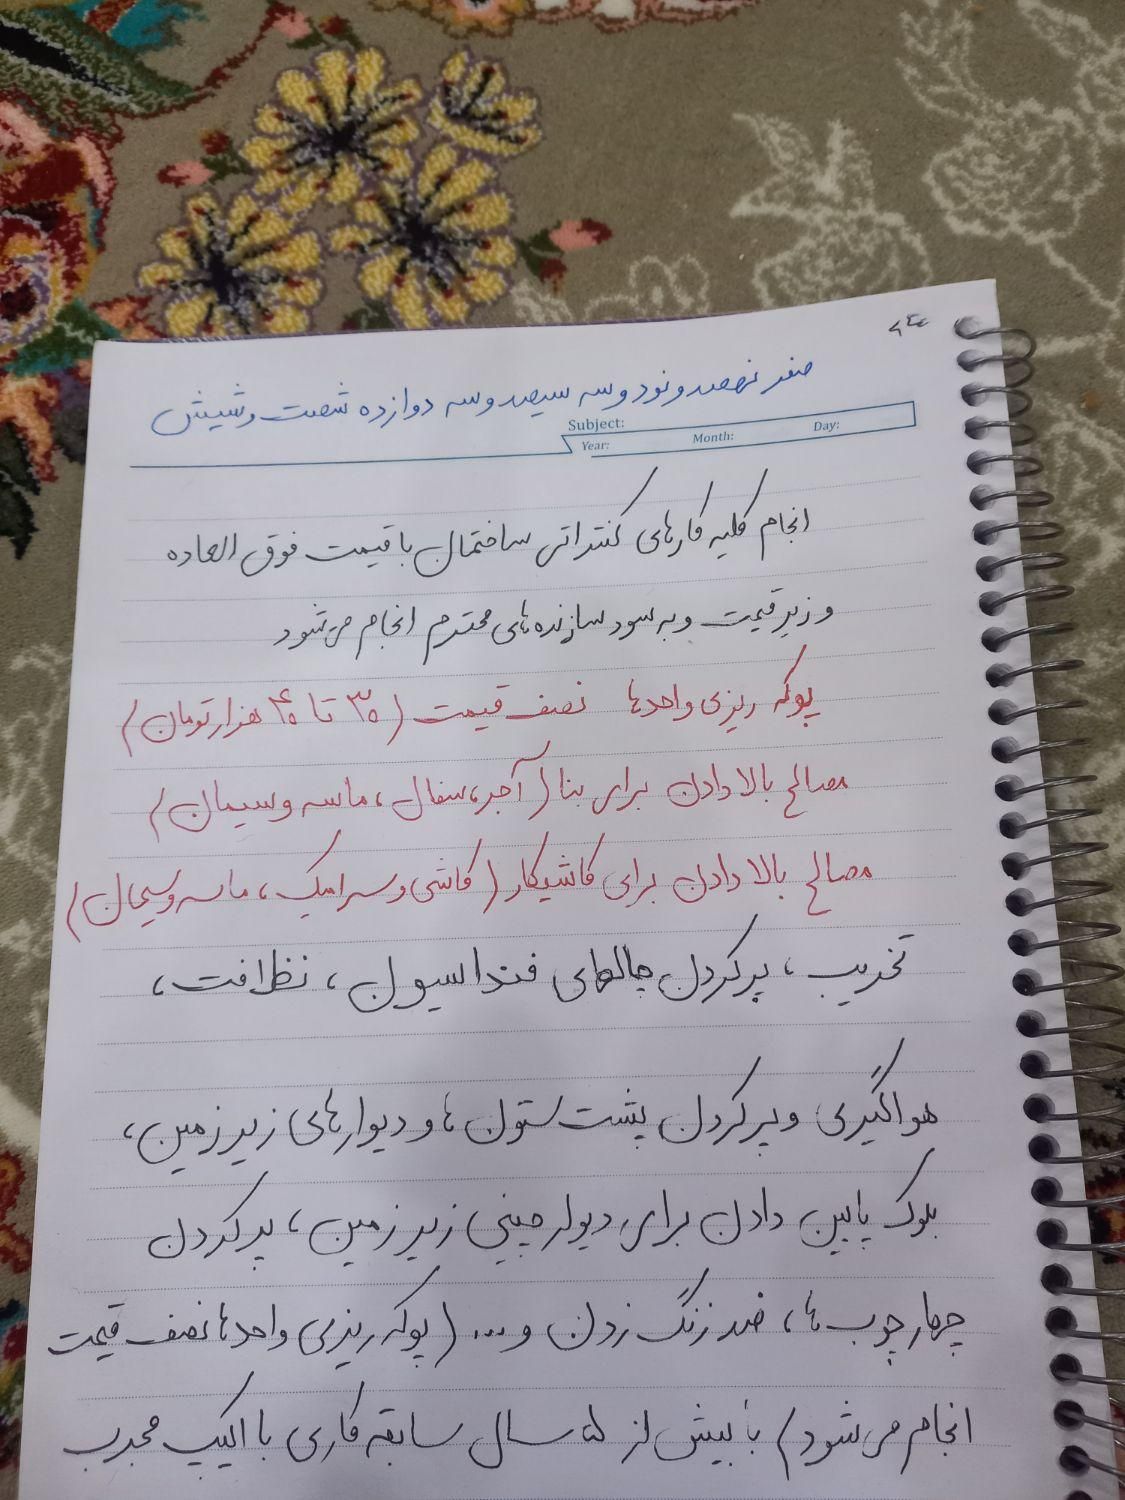 صفر نهصد و نود و سه سیصد و سه دوازده شصت و شیش
Subject:
Year: Month: Day:
انجام کلیه کارهای کنتراتی ساختمان با قیمت فوق العاده
و زیر قیمت و به سود سازنده های محترم انجام می شود
پوکه ریزی واحدها نصف قیمت (۳۰ تا ۴۰ هزار تومان)
مصالح بالا دادن برای بنا (آجر، سفال، ماسه و سیمان)
مصالح بالا دادن برای کاشیکار (کاشی و سرامیک، ماسه و سیمان)
تخریب، پر کردن چالهای فنداسیون، نظافت،
هواگیری و پر کردن پشت ستون ها و دیوارهای زیر زمین،
بلوک پایین دادن برای دیوار چینی زیر زمین، پر کردن
چهار چوب ها، ضد زنگ زدن و ... (پوکه ریزی واحدها نصف قیمت
انجام می شود) با بیش از ۵ سال سابقه کاری با اکیپ مجرب